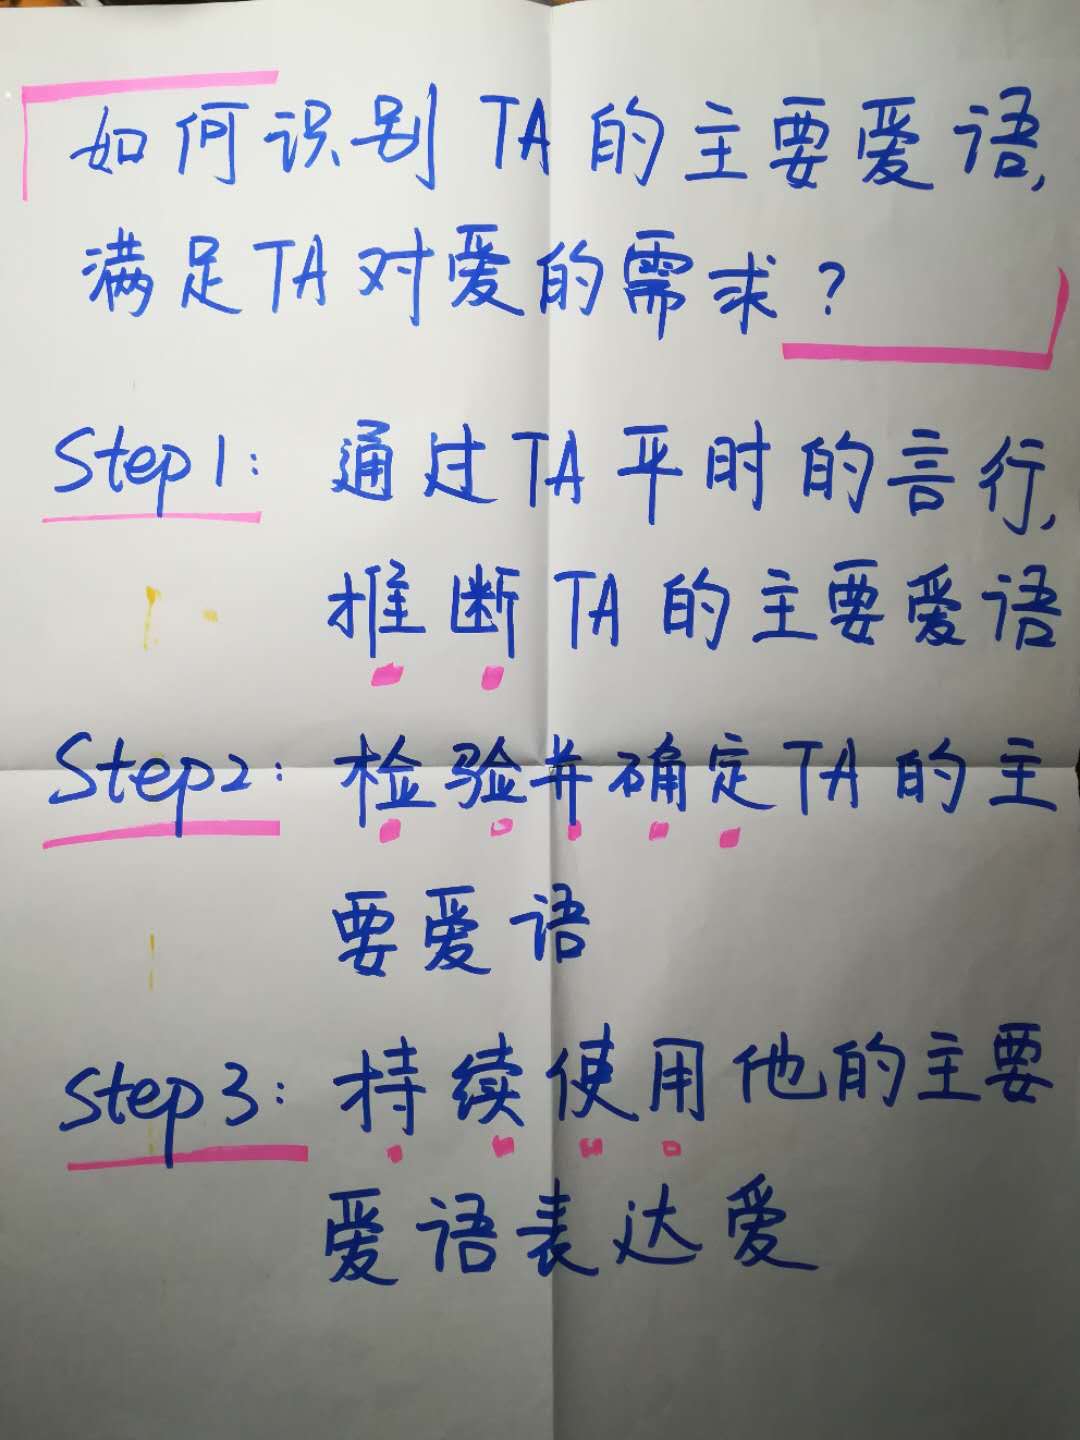 如何识别TA的主要爱语,
满足TA对爱的需求?
Step1: 通过TA平时的言行,
推断TA的主要爱语
Step2: 检验并确定TA的主
要爱语
Step3: 持续使用他的主要
爱语表达爱